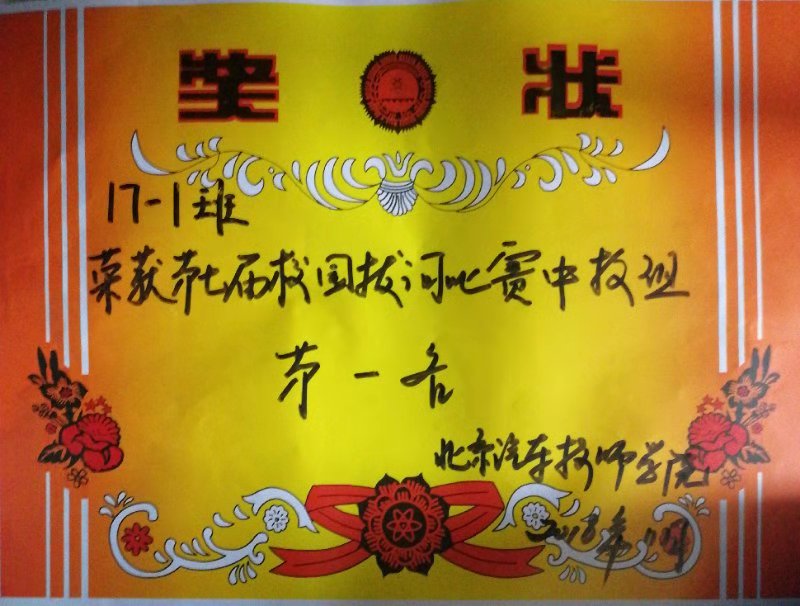 奖状
17-1班
荣获第七届校园拔河比赛中技组
第一名
北京汽车技师学院
2018年11月